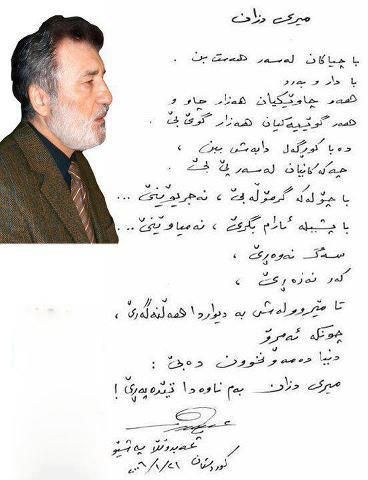 میری دزان
با چیاکان لەسەر هەست بن .
با دار و بەرد
هەموو چاوێکیان هەزار چاو و
هەموو گوێیەکیان هەزار گوێ بێ .
دەبا کوڕگەل دابەش ببن ،
چەکەکانیان لەسەر پێ بێ .
با چۆلەکە گرمۆڵە بێ ، نەجریوێنێ ...
با پشیلە ئارام بگرێ ، نەمیاوێنێ ...
سەگ نەوەڕێ ،
کەر نەزەڕێ ،
تا مێروولەش بە دیواردا هەڵنەگەڕێ ،
چونکە ئەمڕۆ
دنیا دەمەو نخوون دەبێ :
میری دزان بەم ناوەدا تێدەپەڕێ !
عەبدوڵڵا پەشێو
کوردستان ٢٠٠٦/١/٢١